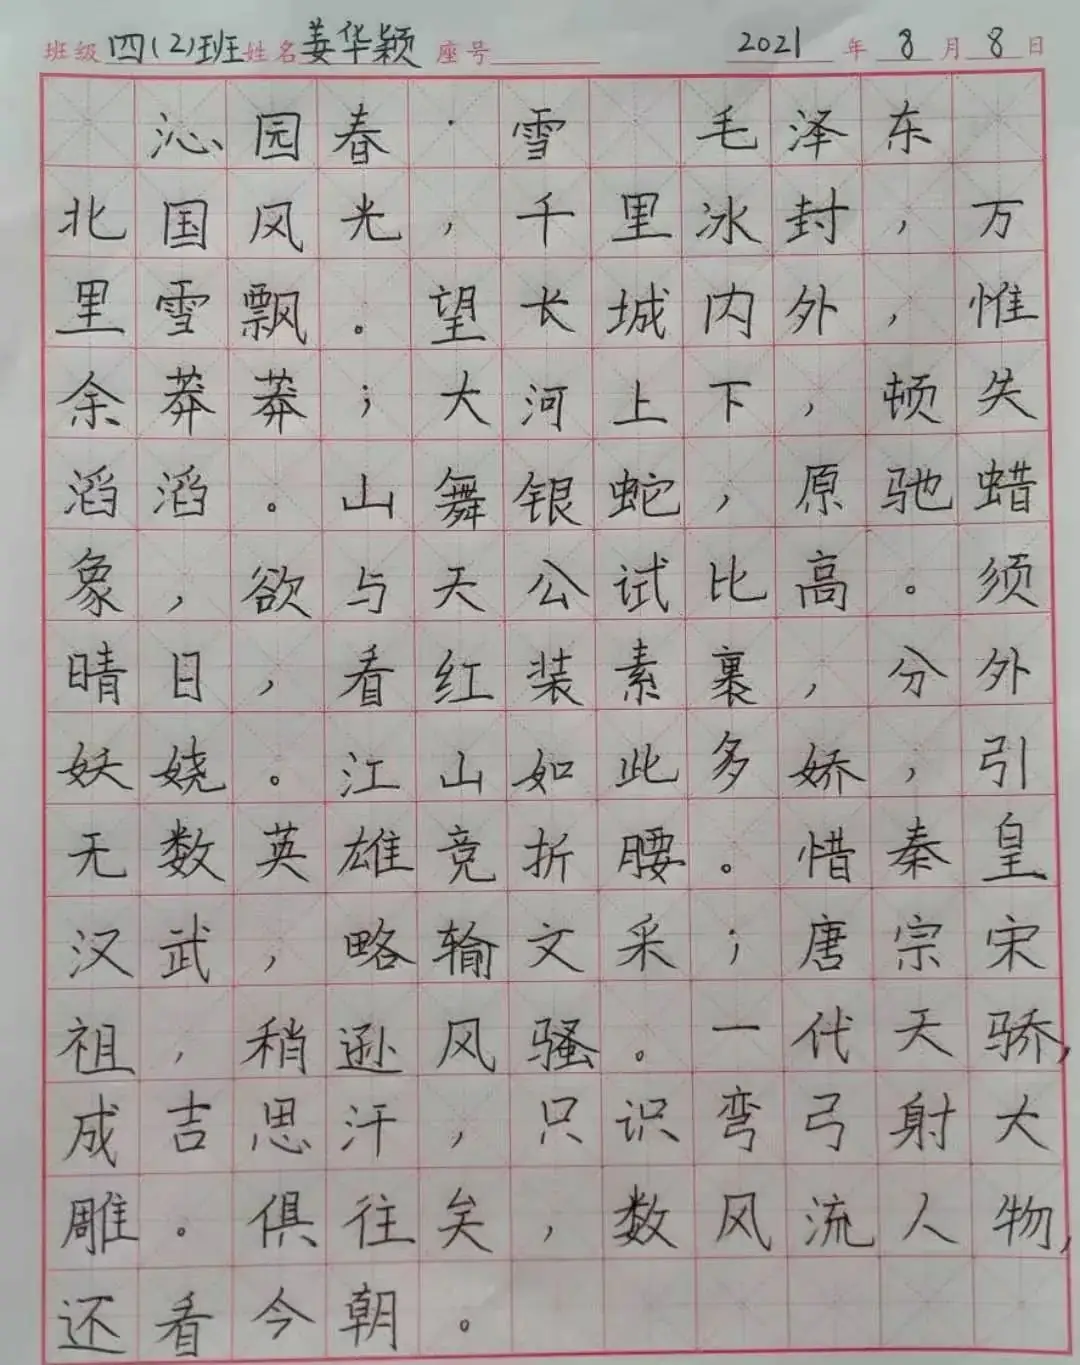 班级 四(2)班 姓名 姜华颖 座号 2021 年 8 月 8 日
沁园春·雪 毛泽东
北国风光，千里冰封，万
里雪飘。望长城内外，惟
余莽莽；大河上下，顿失
滔滔。山舞银蛇，原驰蜡
象，欲与天公试比高。须
晴日，看红装素裹，分外
妖娆。江山如此多娇，引
无数英雄竞折腰。惜秦皇
汉武，略输文采；唐宗宋
祖，稍逊风骚。一代天骄，
成吉思汗，只识弯弓射大
雕。俱往矣，数风流人物，
还看今朝。